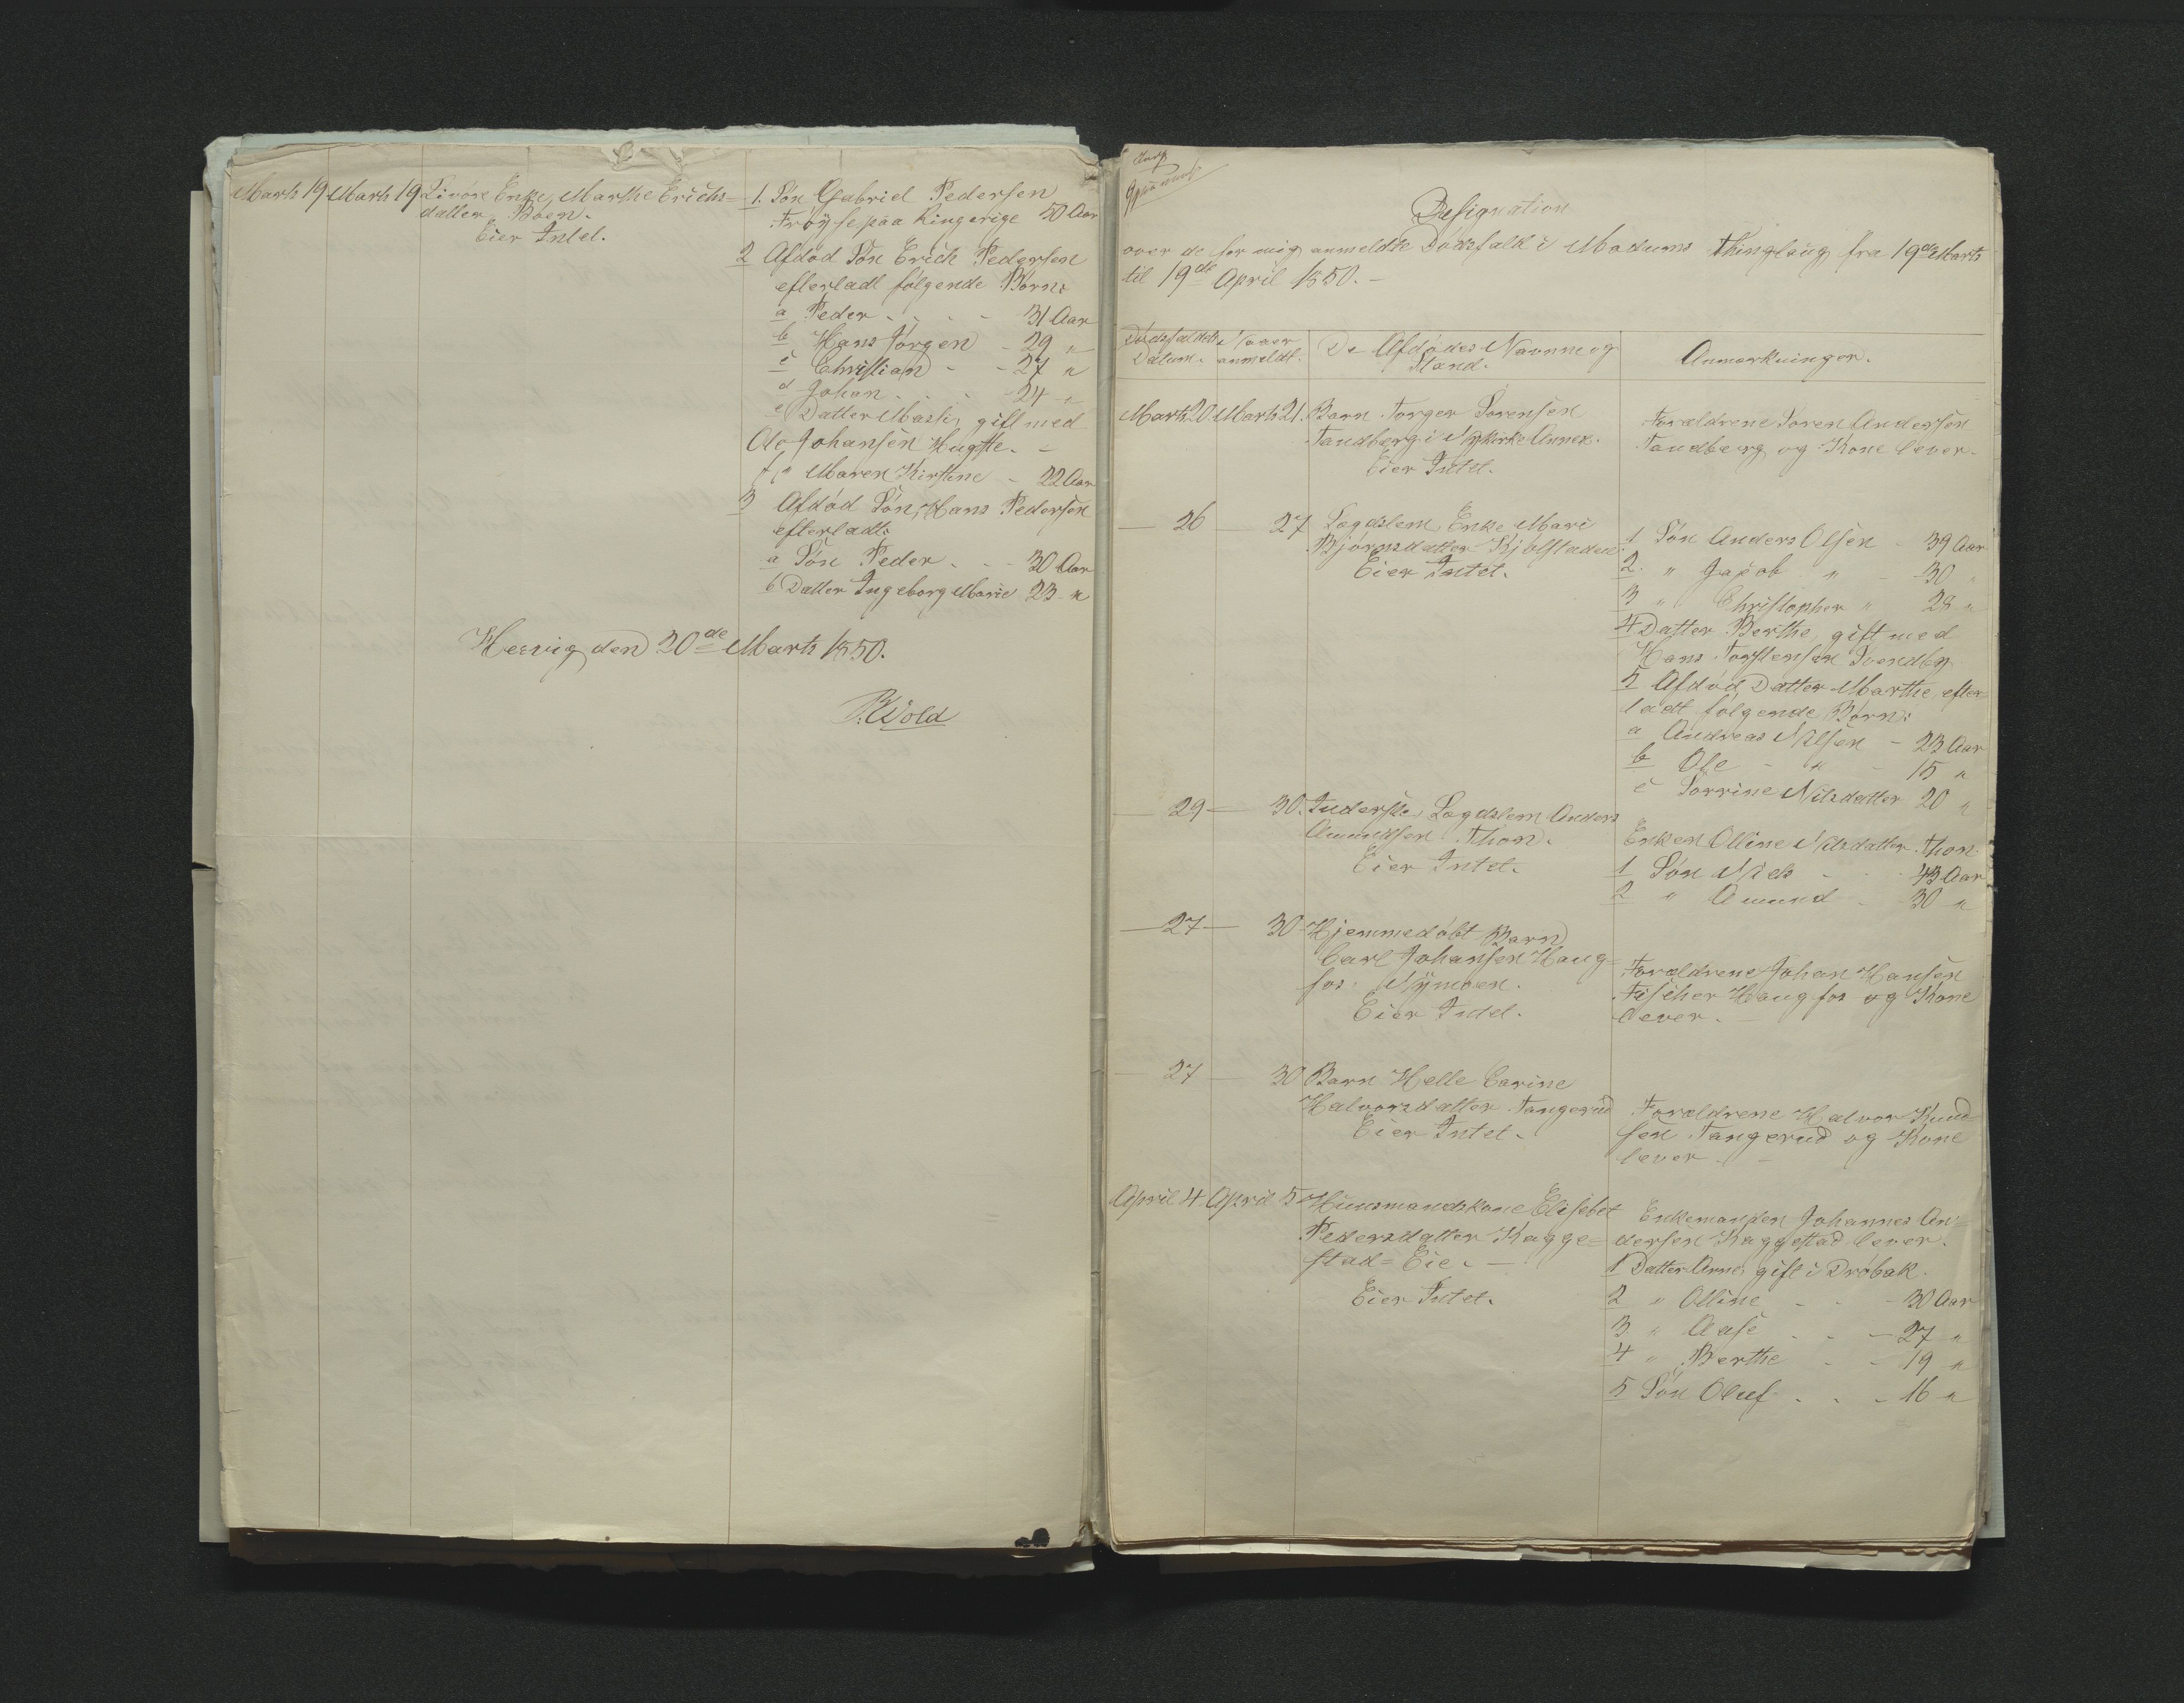 Marts 19 Marts 19 Livöre Enke, Marthe Erichs-
datter Böen.
Eier Intet.
1. Sön Gabriel Pedersen
Fröyse paa Ringerige 50 Aar
2 Afdöd Sön Erich Pedersen
efterladt fölgende Börn:
a Peder - - - - 31 Aar
b Hans Jörgen - 29 "
c Christian - - 27 "
d Johan - - - 24 "
e Datter gift med
Ole Johansen
f " Maren Kirstine - 22 Aar
3 Afdöd Sön, Hans Pedersen
efterladt:
a Sön Peder - - - 30 Aar
b Datter Ingeborg Marie 23 "
Hervig den 20de Marts 1850.
P. Wold
Designation
over de for mig anmeldte Dödsfald i Modums Thinglaug fra 19de Marts
til 19de April 1850. -
Dödsfaldets
Datum.
Naaer
anmeldt.
De Afdödes Navnne og
Stand.
Anmærkninger.
Marts 20. Marts 21. Barn Torger Sörensen
Tandberg i Nykirke Annex.
Eier Intet.
Forældrene Sören Andersen
Tandberg og Kone lever.
— 26 — 27 Lægdslem, Enke Mari
Björnsdatter
Eier Intet.
1 Sön Anders Olsen - 39 Aar
2. " Jacob " - 30 "
3 " Christopher " 28 "
4 Datter Berthe, gift med
Hans Torstensen Svendby
5 Afdöd Datter Marthe, efter-
ladt fölgende Börn:
a Andreas Nilsen - 23 Aar
b Ole - " - 15 "
c Sörrine Nilsdatter 20 "
— 29 — 30. Inderste, Lægdslem Anders
Amundsen Thon.
Eier Intet.
Enken Olline Nilsdatter Thon
1 Sön Niels - - - 43 Aar
2 " Amund - - 30 "
— 27 — 30 Hjemmedöbt Barn
Carl Johansen Haug-
fos Nÿmoen.
Eier Intet.
Forældrene Johan Hansen
Fischer Haugfos og Kone
lever. —
— 27 — 30 Barn Helle Carine
Halvorsdatter Tangerud
Eier Intet.
Forældrene Halvor Knud-
sen Tangerud og Kone
lever. —
April 4 April 5 Huusmandskone Elisebet
Pedersdatter Kagge-
stad-Eie. —
Eier Intet.
Enkemanden Johannes An-
dersen Kaggestad lever.
1 Datter Anne, gift i Dröbak.
2 " Olline - - - 30 Aar
3. " Aase - - - 27 "
4 " Berthe - - 19 "
5 Sön Oluf - - - 16 "